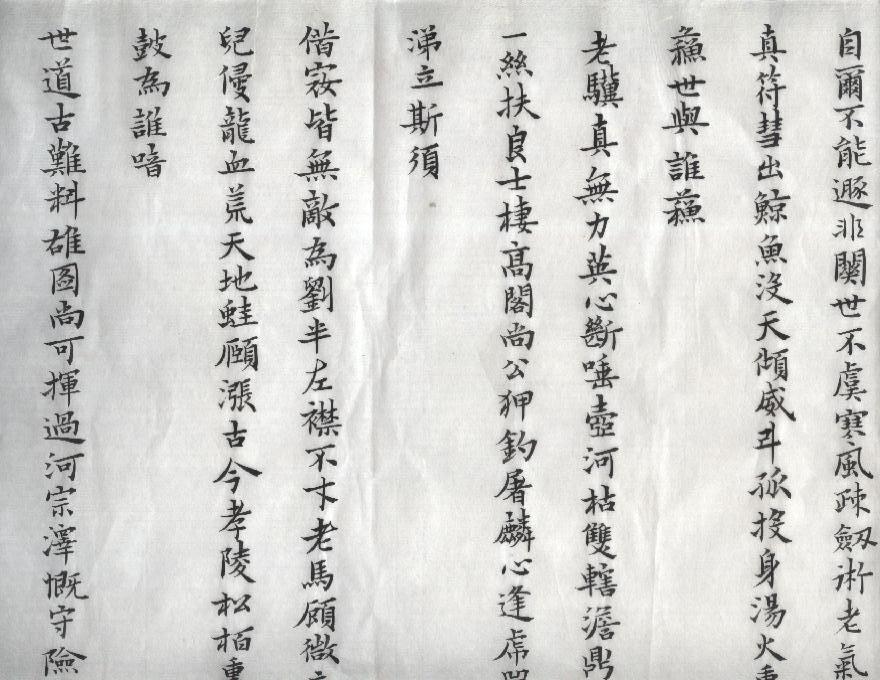 自爾不能遯非關世不虞寒風疎劔術老氣
真符彗出鯨魚沒天傾威斗孤投身湯火
蘓世與誰蘓
老驥真無力英心斷唾壺河枯雙轄澹鼎
一絲扶良士棲高閣尚公狎釣屠麟心逢虎
涕立斯須
偕寇皆無敵為劉半左襟不卞老馬顧微
兒侵龍血荒天地蛙頤漲古今孝陵松柏重
鼓為誰喑
世道古難料雄圖尚可揮過河宗澤慨守險